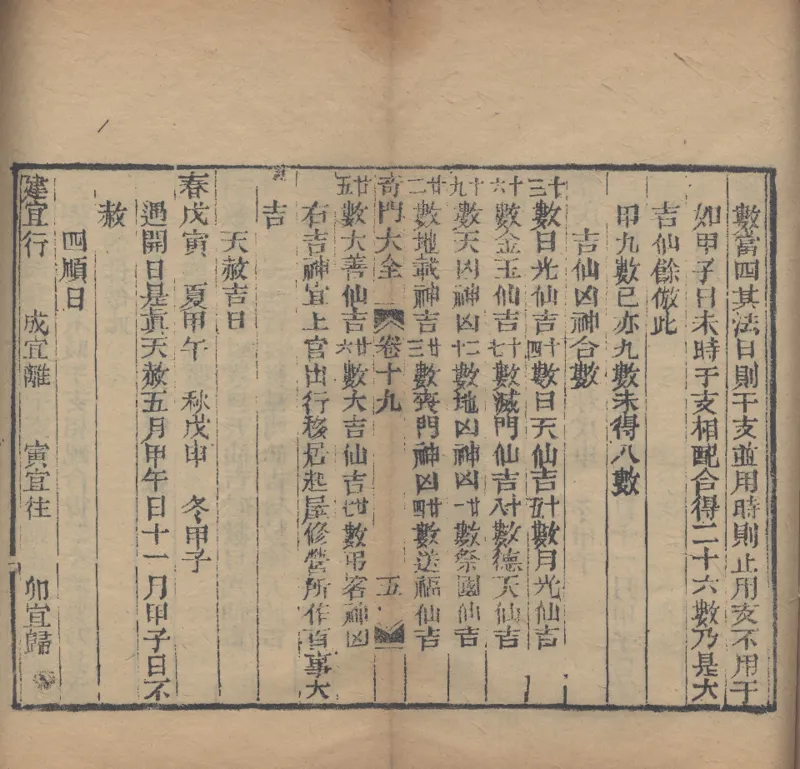 數當四其法日則干支並用時則止用支不用干
如甲子日未時于支相配合得二十六數乃是大
吉仙餘倣此
甲九數已亦九數未得八數
吉仙凶神合數
十三數日光仙吉十四數日天仙吉十五數月光仙吉
十六數金玉仙吉十七數滅門仙吉十八數德天仙吉
十九數天凶神凶二十數地凶神凶廿一數祭國仙吉
廿二數地載神吉廿三數喪門神凶廿四數送福仙吉
奇門大全 卷十九 五
廿五數大善仙吉廿六數大吉仙吉廿七數弔客神凶
右吉神宜上官出行移居起屋修營所作百事大
吉
天赦吉日
春戊寅 夏甲午 秋戊申 冬甲子
遇開日是眞天赦五月甲午日十一月甲子日不
赦
四順日
建宜行 成宜離 寅宜往 卯宜歸